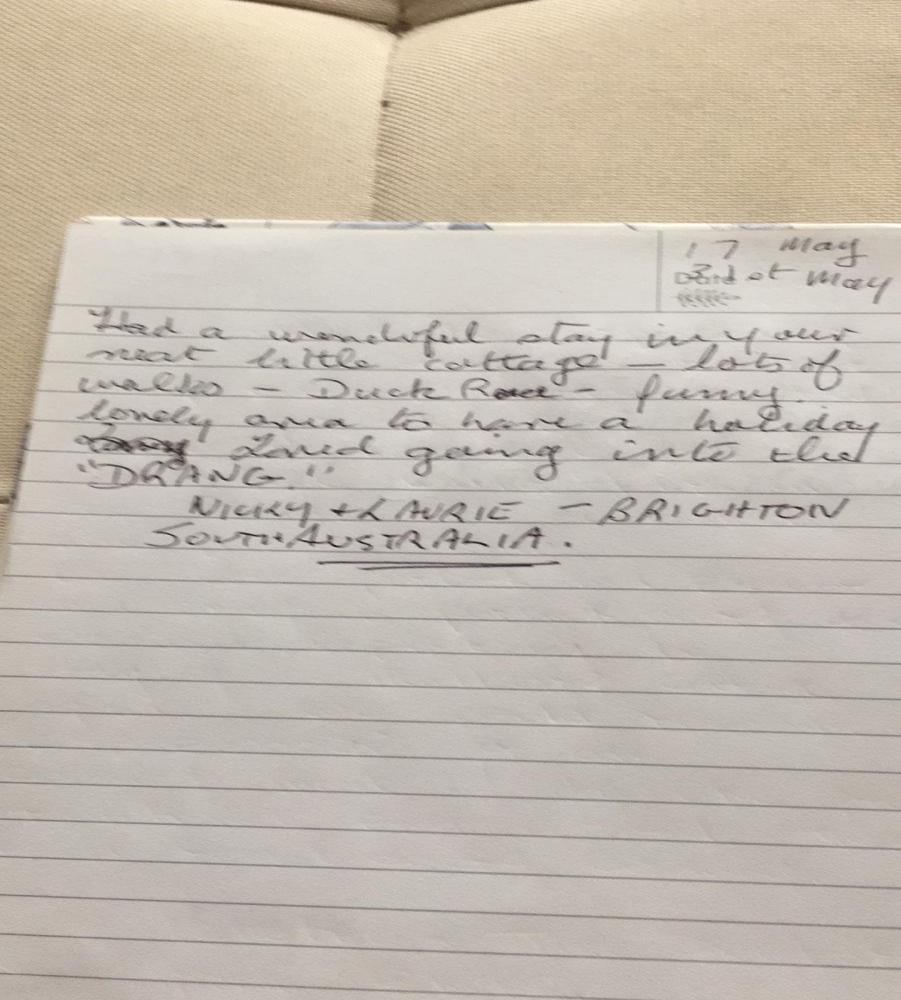 17 May
3rd of May
Had a wonderful stay in your
neat little cottage – lots of
walks – Duck Race – funny.
lovely area to have a holiday
Loved going into the
"DRANG"
NICKY + LAURIE – BRIGHTON
SOUTH AUSTRALIA.